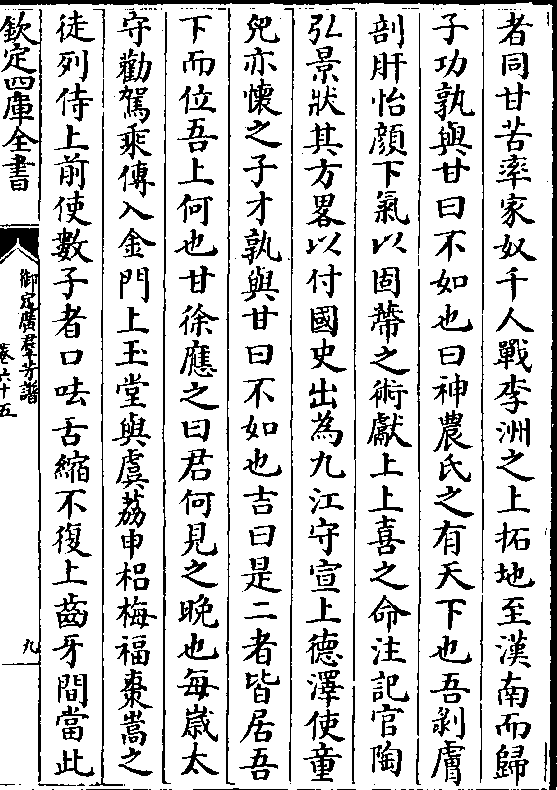 者同甘苦率家奴千人戰李洲之上拓地至漢南而歸
子功孰與甘曰不如也曰神農氏之有天下也吾剝膚
剖肝怡顔下氣以固蔕之術獻上上喜之命注記官陶
弘景狀其方畧以付國史出為九江守宣上德澤使童
兒亦懷之子才孰與甘曰不如也吉曰是二者皆居吾
下而位吾上何也甘徐應之曰君何見之晚也每嵗太
守勸駕乘傳入金門上玉堂與虞荔申梠梅福棗嵩之
徒列侍上前使數子者口呿舌縮不復上齒牙間當此
欽定四庫全書
御定廣羣芳譜
卷六十五
九